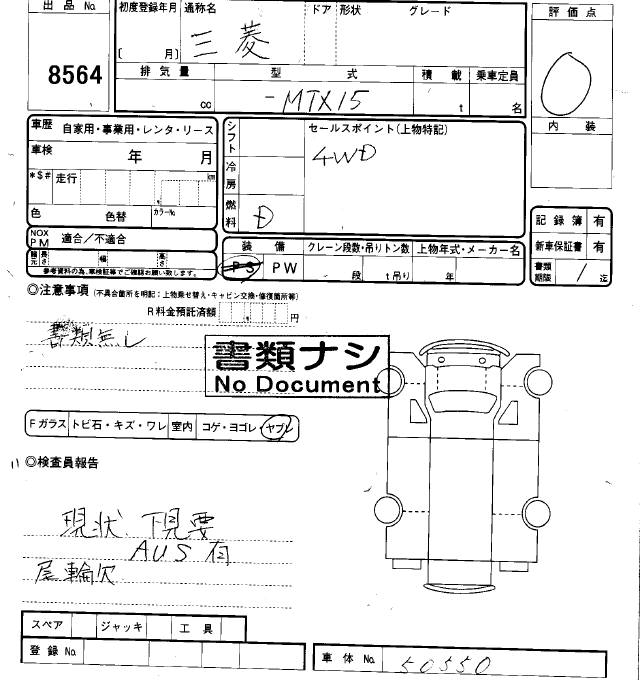 出品No.
8564
初度登録年月 通称名 ドア 形状 グレード
( 月) 三菱
排気量 型式 積載 乗車定員
cc -MTX15 t 名
評価点
内装
車歴 自家用・事業用・レンタ・リース
車検 年 月
*$# 走行 km
色 色替 カラーNo.
NOX PM 適合/不適合
長さ 幅 高さ
参考資料の為、車検証等でご確認お願い致します。
シフト
冷房
燃料 D
セールスポイント(上物特記)
4WD
装備 クレーン段数・吊りトン数 上物年式・メーカー名
PS PW 段 t吊り 年
記録簿 有
新車保証書 有
書類期限 / 迄
◎注意事項 (不具合箇所を明記:上物乗せ替え・キャビン交換・修復箇所等)
R料金預託済額 円
書類無し
書類ナシ
No Document
Fガラス トビ石・キズ・ワレ 室内 コゲ・ヨゴレ・ヤブレ
◎検査員報告
現状 下見要
AUS有
尾輪欠
スペア ジャッキ 工具
登録No.
車体No. 50550